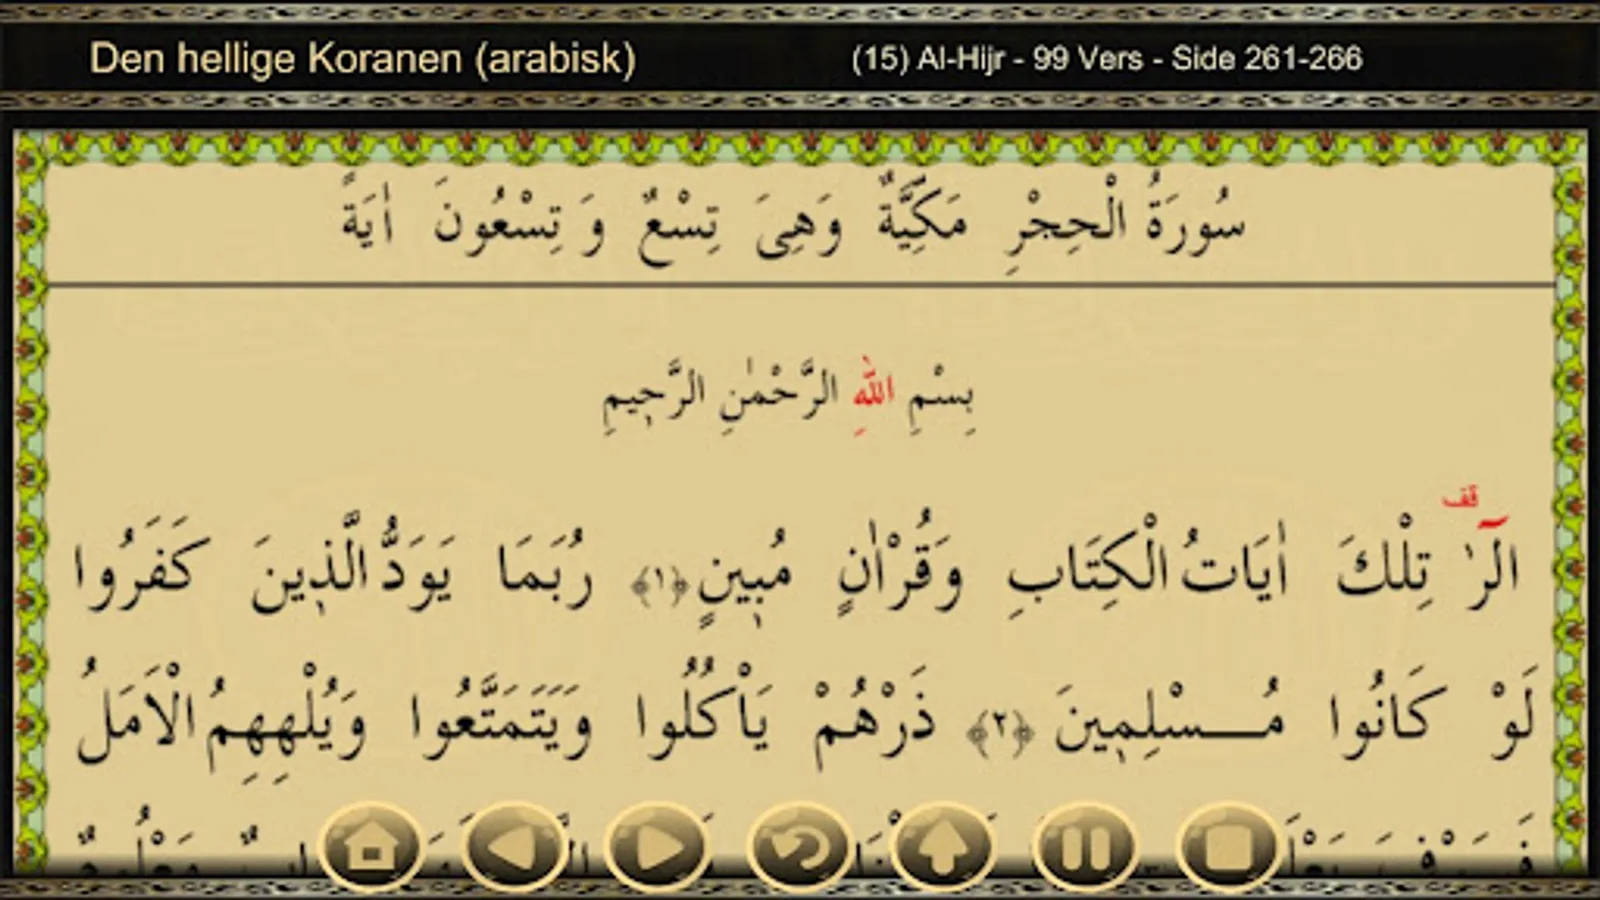 Den hellige Koranen (arabisk)
(15) Al-Hijr - 99 Vers - Side 261-266
سُورَةُ الْحِجْرِ مَكِّيَّةٌ وَهِىَ تِسْعٌ وَ تِسْعُونَ اٰيَةً
بِسْمِ اللّٰهِ الرَّحْمٰنِ الرَّحٖيمِ
قف
الٓرٰ تِلْكَ اٰيَاتُ الْكِتَابِ وَقُرْاٰنٍ مُبٖينٍ ﴿١﴾ رُبَمَا يَوَدُّ الَّذٖينَ كَفَرُوا
لَوْ كَانُوا مُـــسْلِمٖينَ ﴿٢﴾ ذَرْهُمْ يَاْكُلُوا وَيَتَمَتَّعُوا وَيُلْهِهِمُ الْاَمَلُ